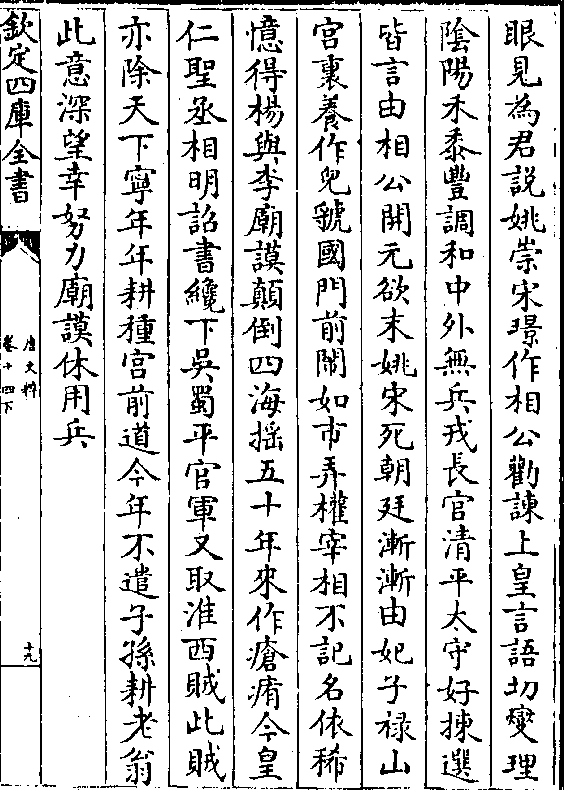 眼見為君說姚崇宋璟作相公勸諫上皇言語切燮理
隂陽禾黍豐調和中外無兵戎長官清平太守好揀選
皆言由相公開元欲末姚宋死朝廷漸漸由妃子禄山
宮裏養作兒虢國門前閙如市弄權宰相不記名依稀
憶得楊與李廟謨顛倒四海揺五十年來作瘡痏今皇
仁聖丞相明詔書纔下吳蜀平官軍又取淮西賊此賊
亦除天下寧年年耕種宮前道今年不遣子孫耕老翁
此意深望幸努力廟謨休用兵
欽定四庫全書
唐文粹
卷十四下
十九